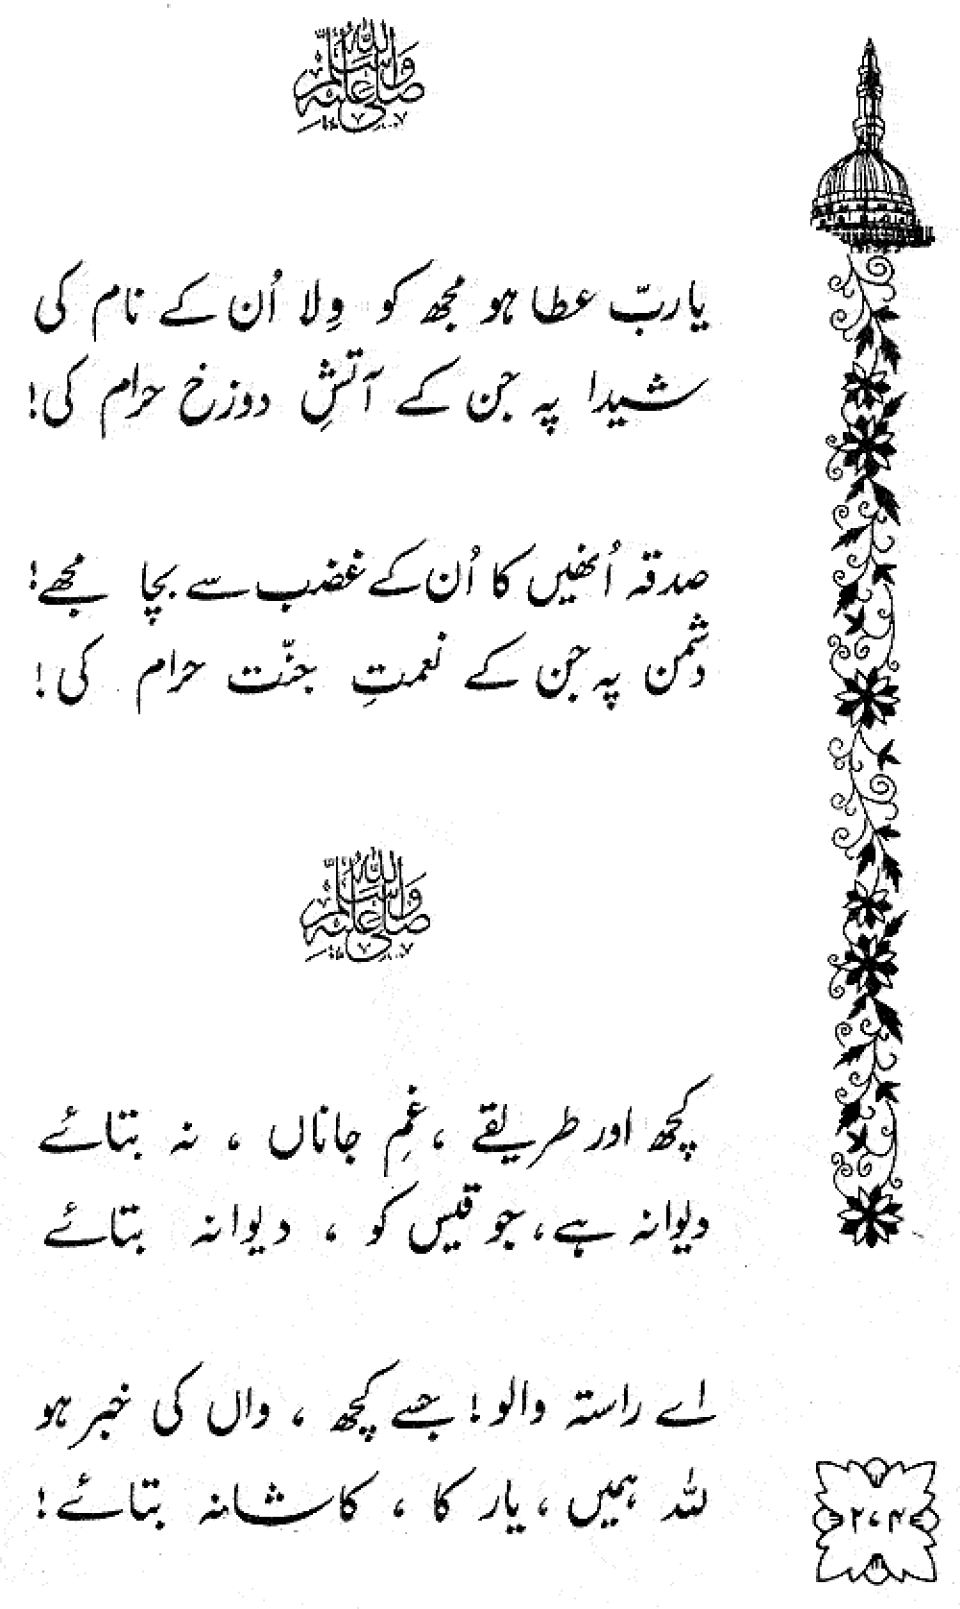 صلی اللہ علیہ وسلم
یا ربّ عطا ہو مجھ کو وِلا اُن کے نام کی
شیدا پہ جن کے آتشِ دوزخ حرام کی!
صدقہ اُنھیں کا اُن کے غضب سے بچا مجھے!
دشمن پہ جن کے نعمتِ جنّت حرام کی!
صلی اللہ علیہ وسلم
کچھ اور طریقے، غمِ جاناں، نہ بتائے
دیوانہ ہے، جو قیس کو، دیوانہ بتائے
اے راستہ والو! جسے کچھ، واں کی خبر ہو
للہ ہمیں، یار کا، کاشانہ بتائے!
۲۰۴